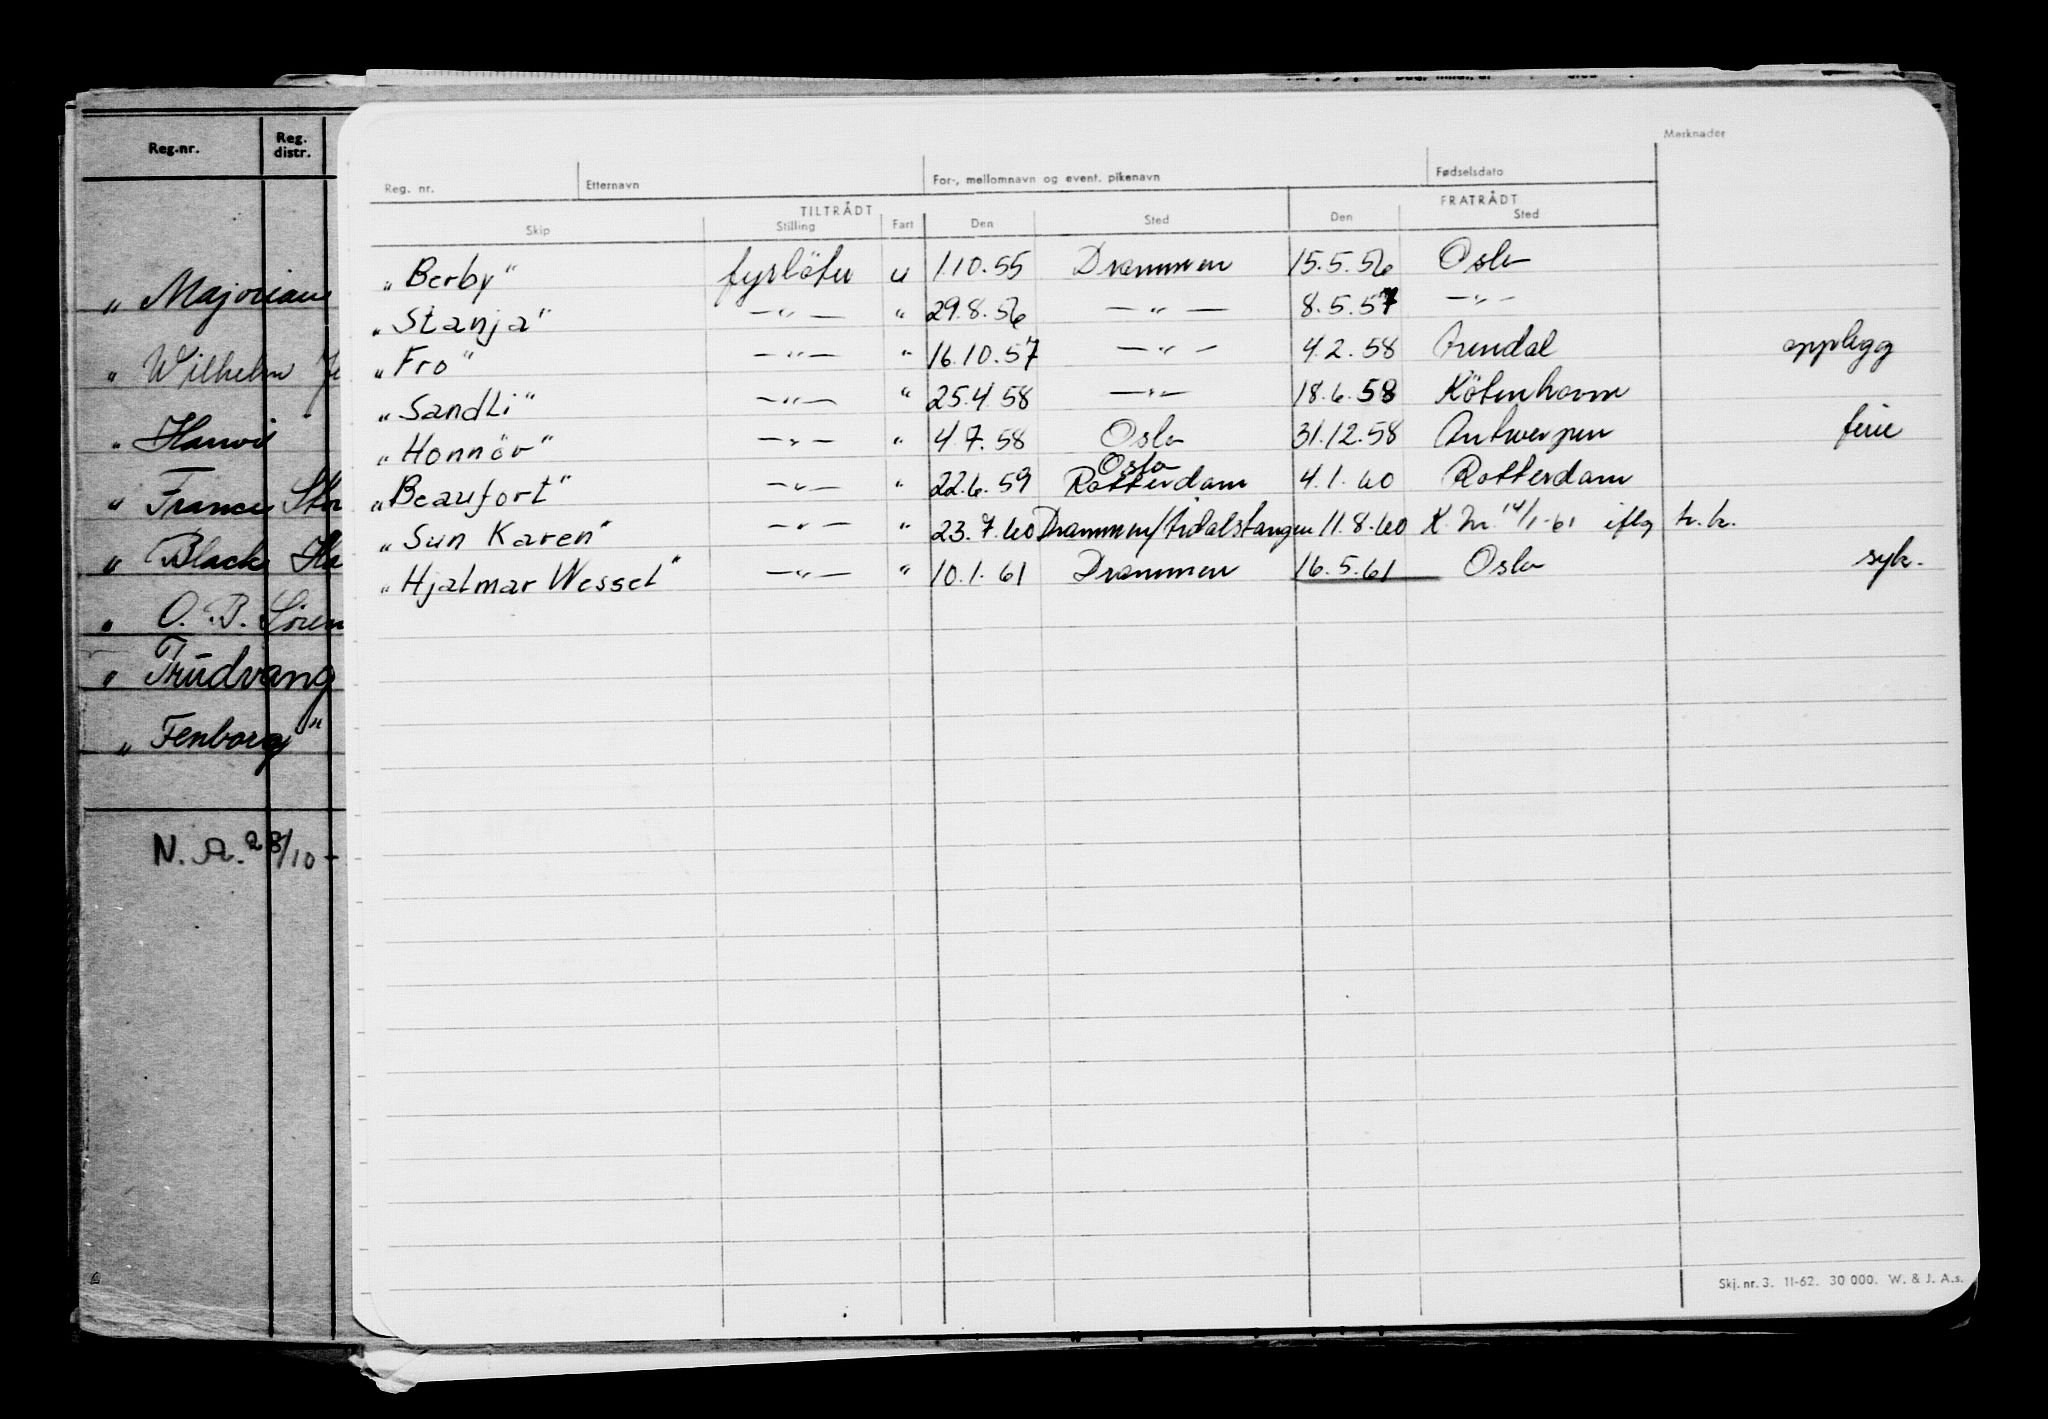 Reg.nr. Reg. distr.
„ Majorian
„ Wilhelm
„ Hanvil
„ Frances
„ Black
„ O. B. Sören
„ Trudvang
„ Fenborg"
N.A. 28/10 -
Merknader
Reg. nr. Etternavn For-, mellomnavn og event. pikenavn Fødselsdato
TILTRÅDT FRATRÅDT
Skip Stilling Fart Den Sted Den Sted
„Berby" fyrböter u 1.10.55 Drammen 15.5.56 Oslo
„Stanja" —„— " 29.8.56 —„— 8.5.57 —„—
„Fro" —„— " 16.10.57 —„— 4.2.58 Arendal opplegg
„Sandli" —„— " 25.4.58 —„— 18.6.58 Köbenhavn
„Honnör" —„— " 4.7.58 Oslo 31.12.58 Antwerpen ferie
Oslo
„Beaufort" —„— " 22.6.59 Rotterdam 4.1.60 Rotterdam
„Sun Karen" —„— " 23.7.60 Drammen/Lidalstangen 11.8.60 K. 14/1-61 iflg
„Hjalmar Wessel" —„— " 10.1.61 Drammen 16.5.61 Oslo syk.
Skj. nr. 3. 11-62. 30 000. W. & J. A.s.